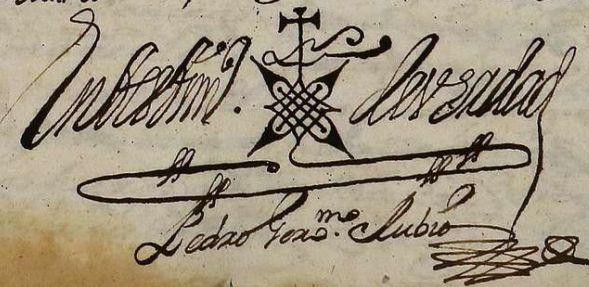 En testim.º de verdad
Pedro Gerº.mo Rubio